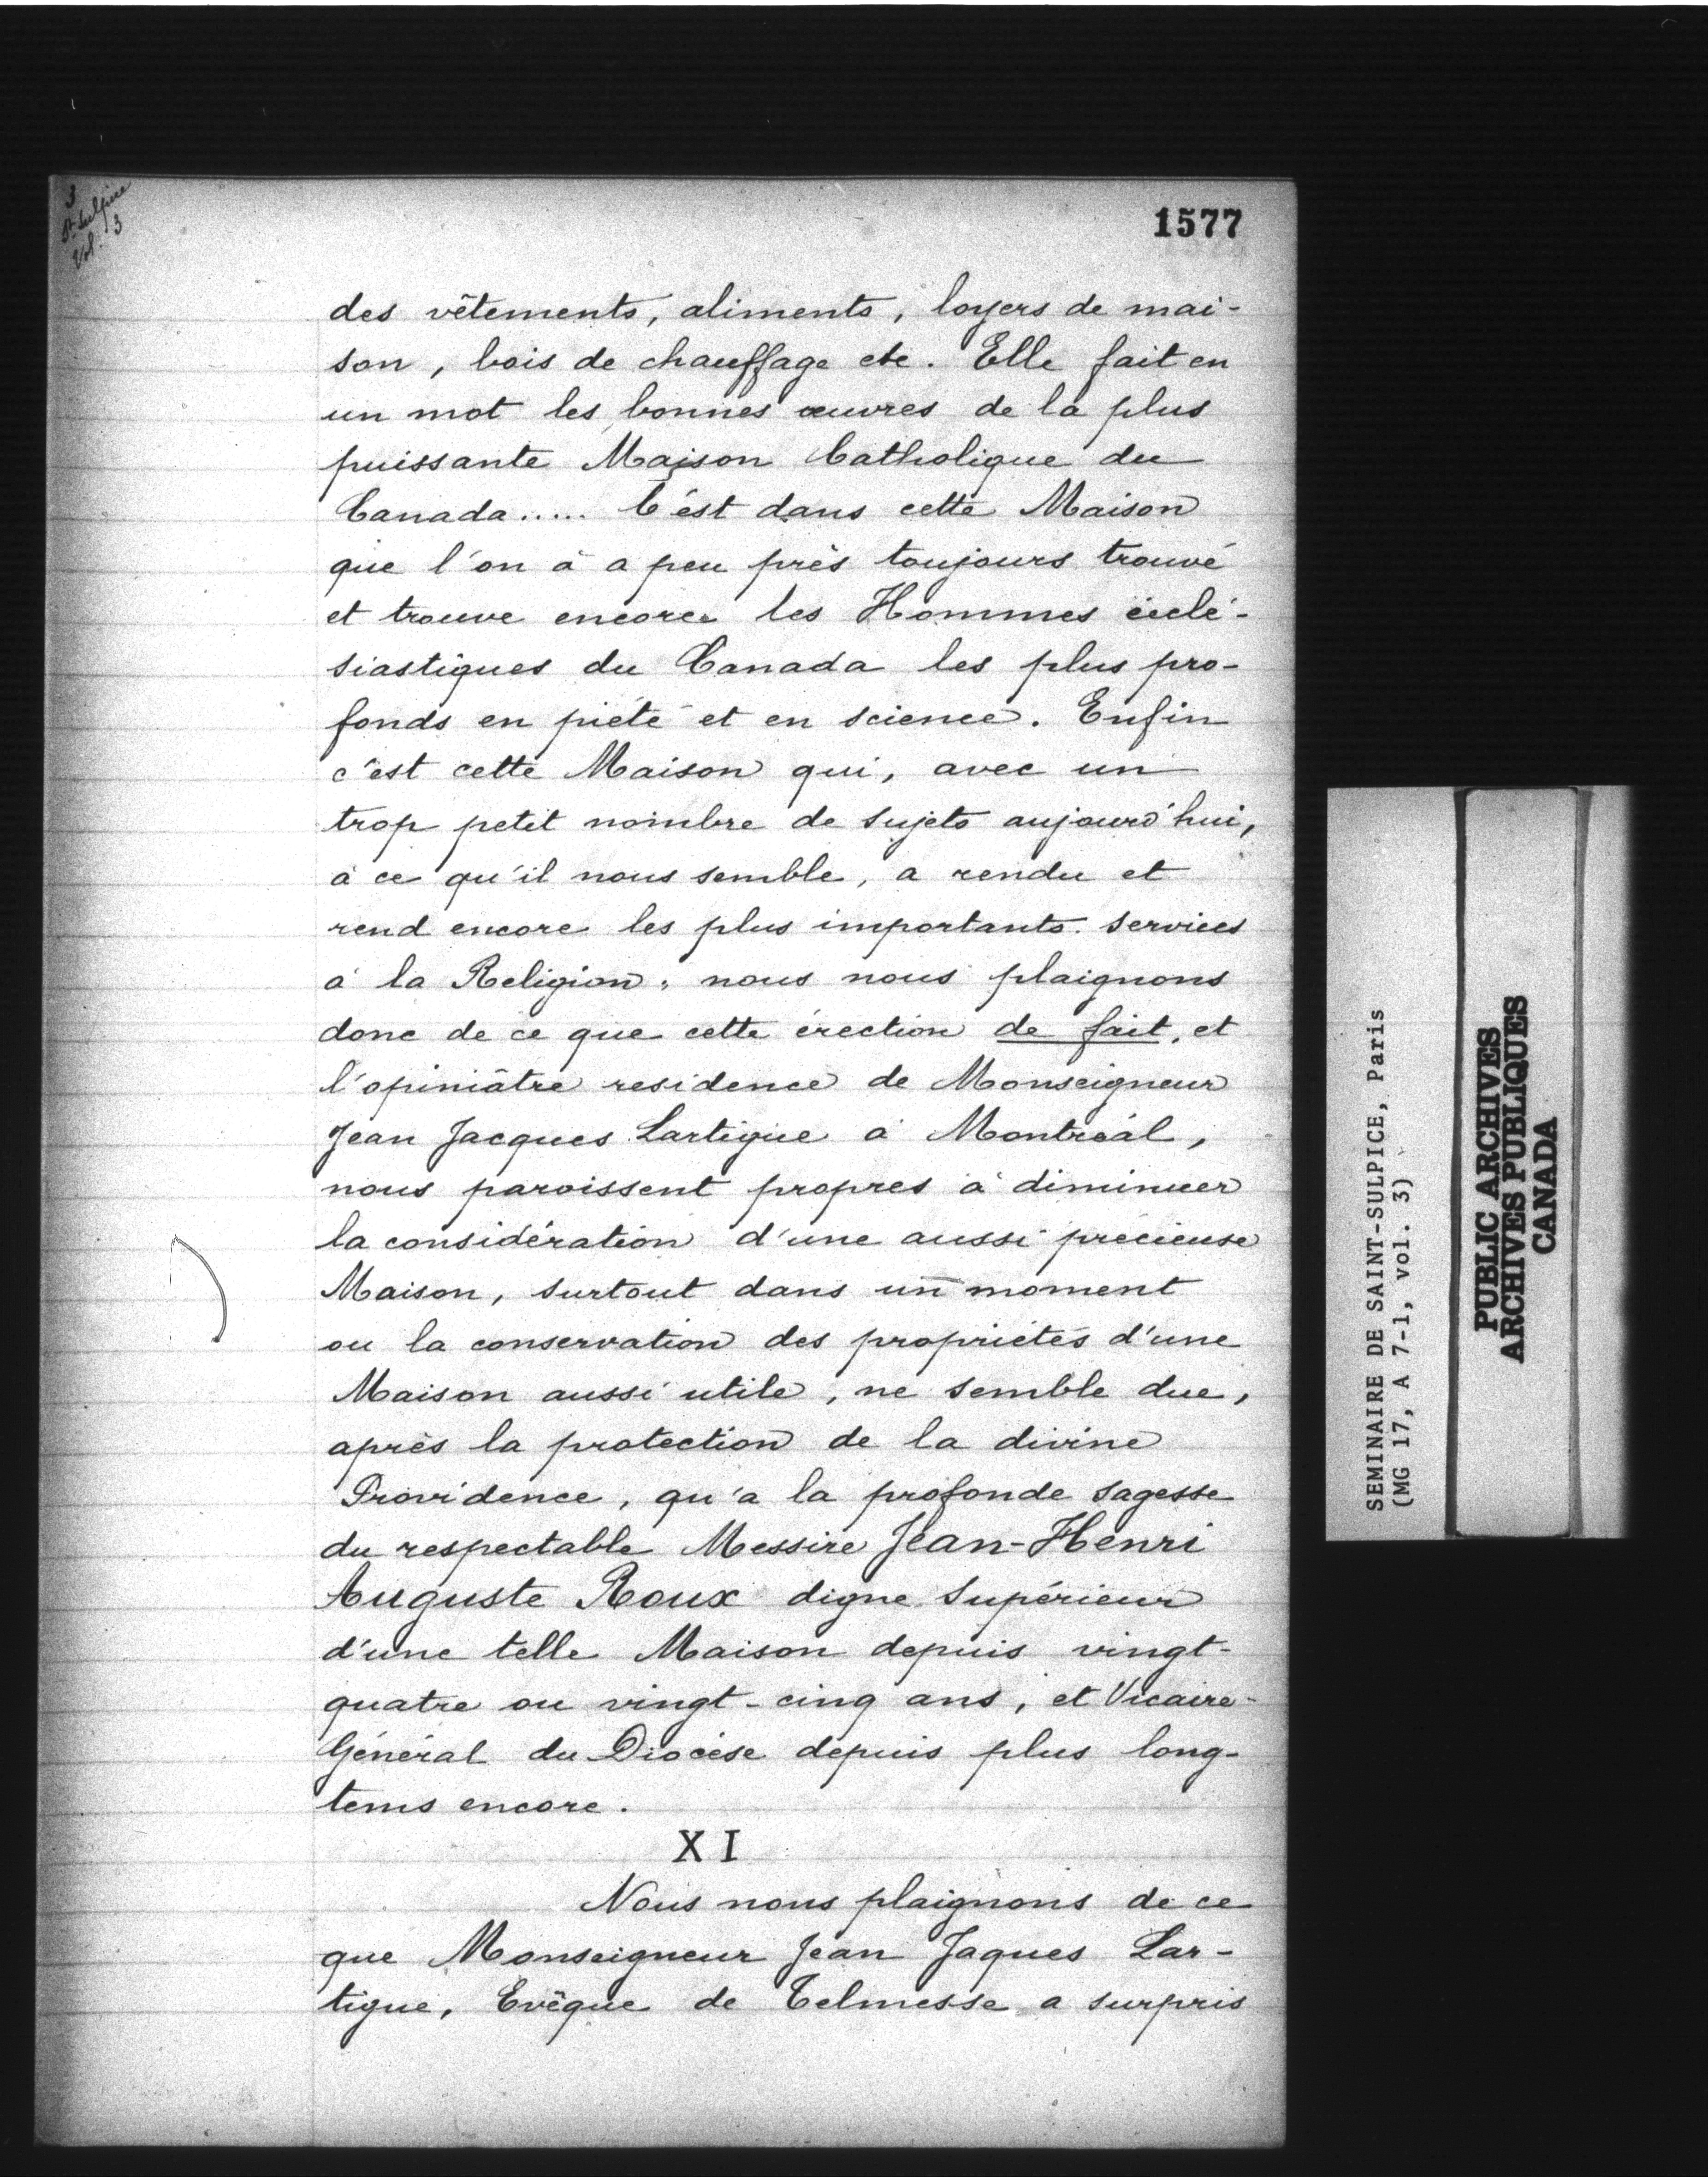 3
St. Sulpice
Vol. 3
1577
des vêtements, aliments, loyers de mai-
son, bois de chauffage etc. Elle fait en
un mot les bonnes œuvres de la plus
puissante Maison Catholique du
Canada..... C'est dans cette Maison
que l'on à a peu près toujours trouvé
et trouve encore les Hommes écclé-
siastiques du Canada les plus pro-
fonds en piété et en science. Enfin
c'est cette Maison qui, avec un
trop petit nombre de sujets aujourd'hui,
à ce qu'il nous semble, a rendu et
rend encore les plus importants services
à la Religion; nous nous plaignons
donc de ce que cette érection de fait, et
l'opiniâtre residence de Monseigneur
Jean Jacques Lartigue à Montréal,
nous paroissent propres à diminuer
la considération d'une aussi précieuse
Maison, surtout dans un moment
ou la conservation des propriétés d'une
Maison aussi utile, ne semble due,
après la protection de la divine
Providence, qu'a la profonde sagesse
du respectable Messire Jean-Henri
Auguste Roux digne Supérieur
d'une telle Maison depuis vingt-
quatre ou vingt-cinq ans, et Vicaire-
Général du Diocèse depuis plus long-
tems encore.
XI
Nous nous plaignons de ce
que Monseigneur Jean Jaques Lar-
tigue, Evêque de Telmesse a surpris
SEMINAIRE DE SAINT-SULPICE, Paris
(MG 17, A 7-1, vol. 3)
PUBLIC ARCHIVES
ARCHIVES PUBLIQUES
CANADA